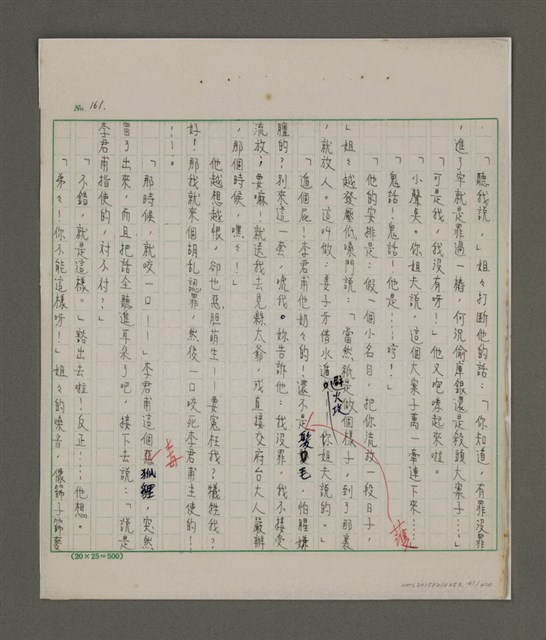 No. 161.
「聽我說…」姐々打斷他的話：「你知道，有罪沒罪
，進了牢就是罪過一樁，何況偷庫銀還是殺頭大案子…」
「可是我，我沒有呀！」他又咆哮起來啦。
「小聲臭。你姐夫說，這個大案子萬一牽連下來……
「鬼話！鬼話！他是……哼！」
「他的安排是：假一個小名目，把你流放一段日子，
」姐々越發嚴低嗓門說：「當然祇是做個樣子，到了那裏
，就放人。這叫做：姜子牙借水遁避火攻。你姐夫說的。」
「遁個屁！李君甫他奶々的！還不是髮毛，怕腥嫌
膻的？別來這一套，唬我。妳告訴他：我沒罪，我不接受
流放；要嘛！就送我去見縣太爺，或直接交府台大人嚴辦
，那個時候，嘿々！」
他越想越恨，卻也惡胆萌生！要寃枉我？犧牲我？
好！那我就來個胡乱認罪，然後一口咬死李君甫主使的！
……。
「那時候，就咬一口！！」李君甫這個惡狐狸，突然
冒了出來，而且把話全聽進耳朵了吧，接下去說：「說是
李君甫指使的，對不对？」
「不錯，就是這樣。」豁出去啦！反正……他想。
「弟々！你不能這樣呀！」姐々的嗓音，像篩子篩麥
(20×25=500)